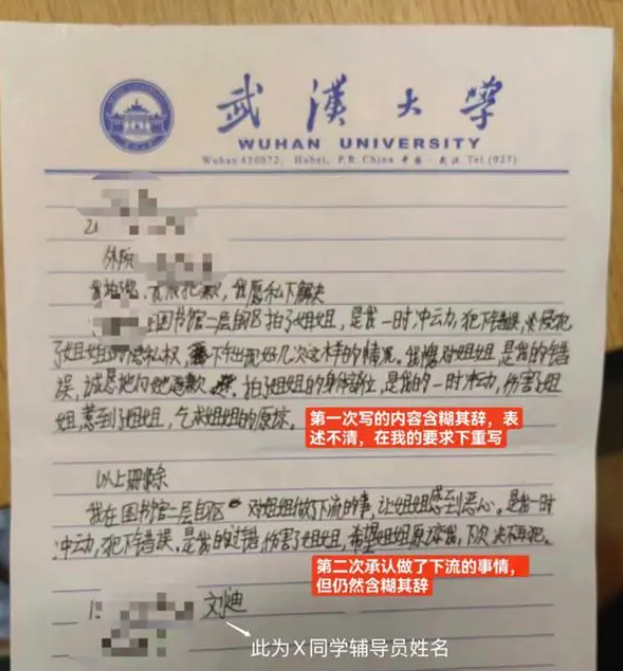 武漢大學
WUHAN UNIVERSITY
Wuhan 430072, Hubei, P.R. China 中国·武汉 Tel.(027)
外院
道歉，我愿私下解决
在图书馆二层自区拍了姐姐，是我一时冲云力，犯下错误，侵犯
了姐姐的隐私权，下出现好几次这样的情况。我愧对姐姐，是我的错
误，诚恳地向她道歉，拍了姐姐的身体部位，是我的一时冲动，伤害了姐
姐，惹到了姐姐，乞求姐姐的原谅。
第一次写的内容含糊其辞，表
述不清，在我的要求下重写
以上删除
我在图书馆二层自区对姐姐做了下流的事，让姐姐感到恶心。是我一时
冲动，犯下错误。是我的过错，伤害了姐姐，希望姐姐原谅我，下次决不再犯。
第二次承认做了下流的事情，
但仍然含糊其辞
文迪
此为X同学辅导员姓名